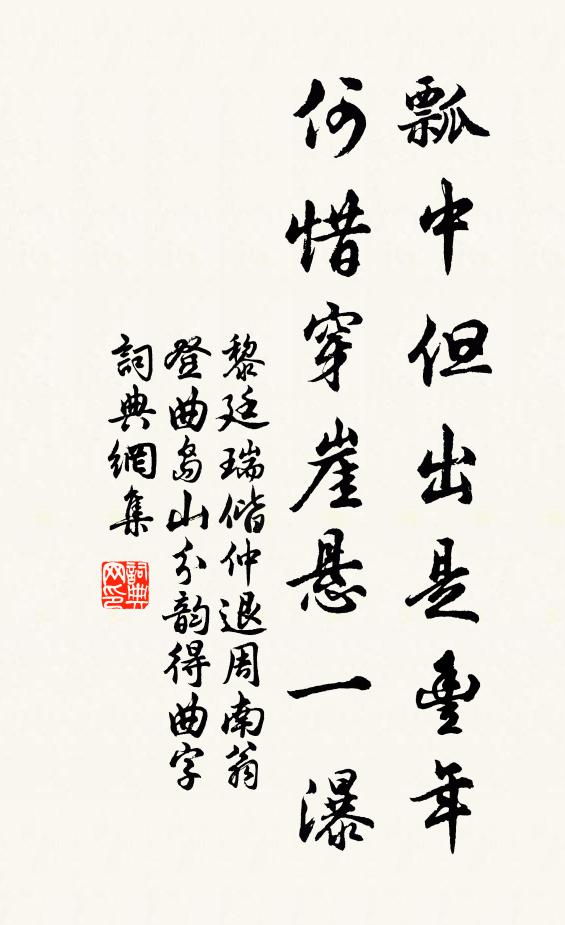 瓢中但出是豐年
何惜穿崖悬一瀑
黎廷瑞偕仲退周南翁
登曲岛山分韵得曲字
詞典網集
詞典网印